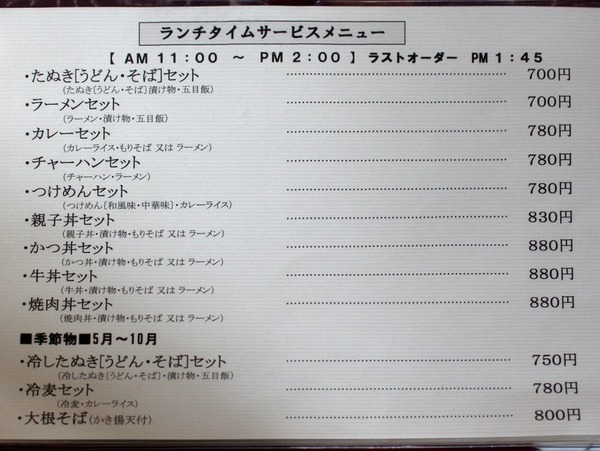 ランチタイムサービスメニュー
【 AM 11:00 ～ PM 2:00 】 ラストオーダー PM 1:45
・たぬき[うどん・そば]セット 700円
(たぬき[うどん・そば]漬け物・五目飯)
・ラーメンセット 700円
(ラーメン・漬け物・五目飯)
・カレーセット 780円
(カレーライス・もりそば 又は ラーメン)
・チャーハンセット 780円
(チャーハン・ラーメン)
・つけめんセット 780円
(つけめん[和風味・中華味]・カレーライス)
・親子丼セット 830円
(親子丼・漬け物・もりそば 又は ラーメン)
・かつ丼セット 880円
(かつ丼・漬け物・もりそば 又は ラーメン)
・牛丼セット 880円
(牛丼・漬け物・もりそば 又は ラーメン)
・焼肉丼セット 880円
(焼肉丼・漬け物・もりそば 又は ラーメン)
■季節物■5月～10月
・冷したぬき[うどん・そば]セット 750円
(冷したぬき[うどん・そば]・漬け物・五目飯)
・冷麦セット 780円
(冷麦・カレーライス)
・大根そば(かき揚天付) 800円